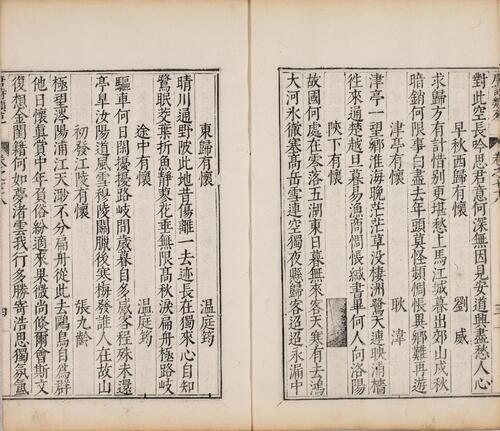 對此空長吟思君意何深無因見安道興盡愁人心
早秋西歸有懷 劉威
求歸方有計惜別更堪愁上馬江城暮出郊山戍秋
暗銷何限事白盡去年頭莫怪頻惆悵與鄉難再遊
津亭有懷 耿湋
津亭一望鄉淮海晚茫茫草沒棲洲鷺天連映浦檣
往來通楚越旦暮易漁商惆悵緘書畢何人向洛陽
陝下有懷
故國何處在零落五湖東日暮無來客天寒有去鴻
大河氷徹塞高岳雪連空獨夜縣歸客迢迢永漏中
東歸有懷 溫庭筠
晴川通野陂此地昔傷離一去迹長在獨來心自知
鷺眠茭葉折魚靜蓼花垂無限高秋淚扁舟極路岐
途中有懷 溫庭筠
驅車何日閑擾擾路岐間歲暮自多感客程殊未還
亭臯汝陽道風雪穆陵關臘後寒梅發誰人在故山
初發江陵有懷 張九齡
極望涔陽浦江天渺不分扁舟從此去鷗鳥自爲群
他日懷眞賞中年負俗紛適來果微尚倐爾會斯文
復想金閨籍何如夢渚雲我行多勝寄浩思獨氛氳
四